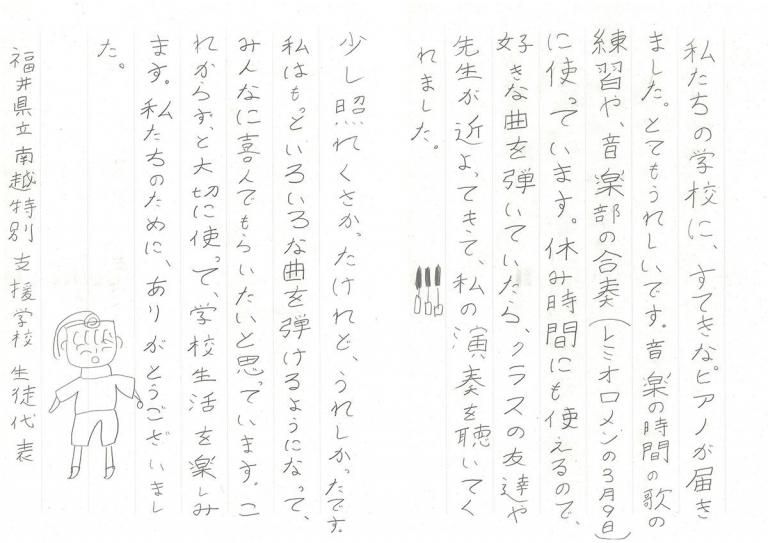 私たちの学校に、すてきなピアノが届き
ました。とてもうれしいです。音楽の時間の歌の
練習や、音楽部の合奏(レミオロメンの3月9日)
に使っています。休み時間にも使えるので、
好きな曲を弾いていたら、クラスの友達や
先生が近よってきて、私の演奏を聴いてく
れました。
少し照れくさかったけれど、うれしかったです。
私はもっといろいろな曲を弾けるようになって、
みんなに喜んでもらいたいと思っています。こ
れからずっと大切に使って、学校生活を楽しみ
ます。私たちのために、ありがとうございまし
た。
福井県立南越特別支援学校 生徒代表